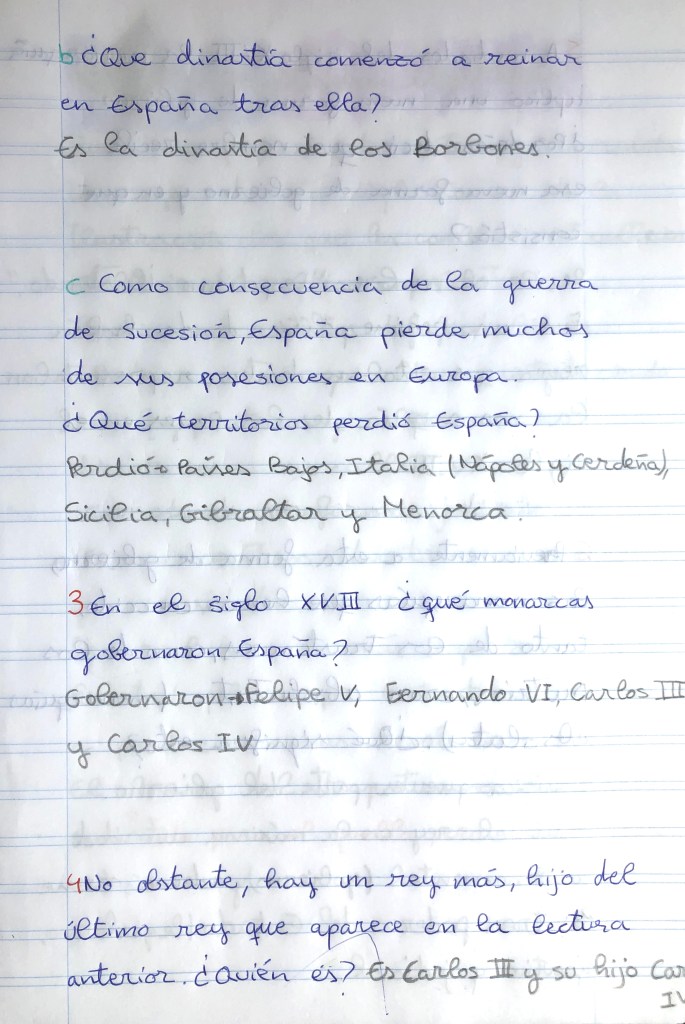 b ¿Que dinastía comenzó a reinar
en España tras ella?
Es la dinastía de los Borbones.
c Como consecuencia de la guerra
de Sucesión, España pierde muchos
de sus posesiones en Europa.
¿Qué territorios perdió España?
Perdió→ Países Bajos, Italia (Nápoles y Cerdeña),
Sicilia, Gibraltar y Menorca.
3 En el siglo XVIII ¿qué monarcas
gobernaron España?
Gobernaron→ Felipe V, Fernando VI, Carlos III
y Carlos IV
4 No obstante, hay un rey más, hijo del
último rey que aparece en la lectura
anterior. ¿Quién es? Es Carlos III y su hijo Car
IV